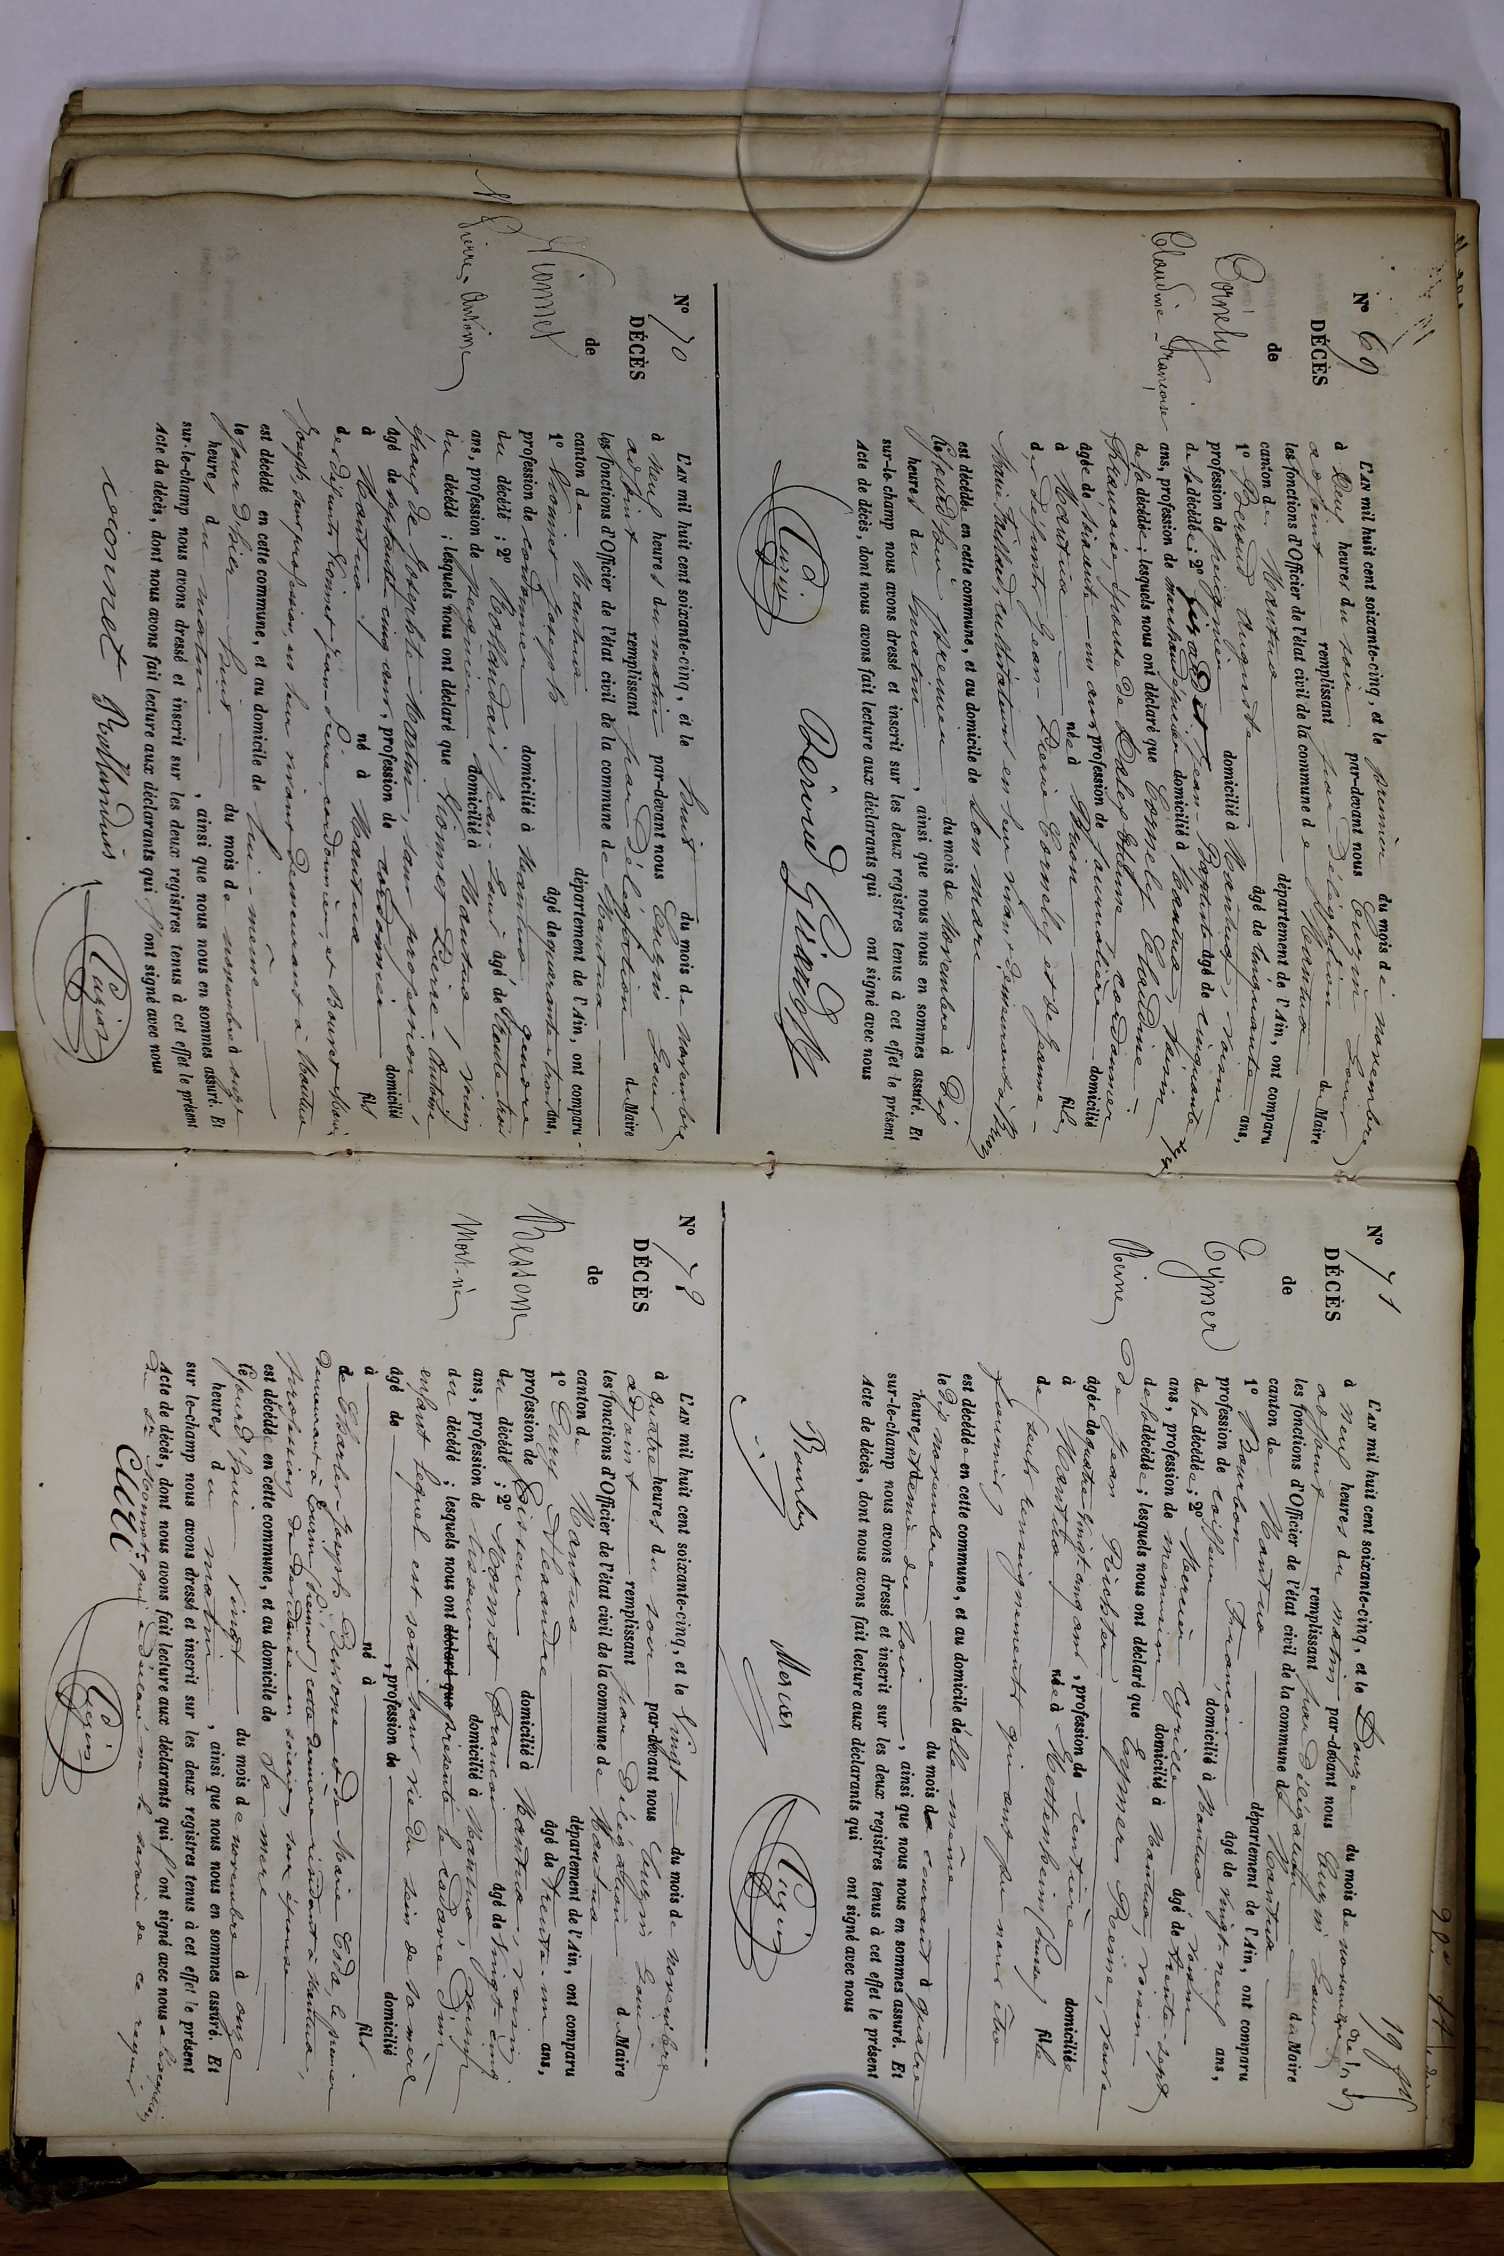 N° 69
DÉCÈS
de
Cornely
Claudine-Françoise
L'AN mil huit cent soixante-cinq, et le premier du mois de novembre
à deux heures du soir par-devant nous Cugin Louis
adjoint remplissant par délégation du Maire
les fonctions d'Officier de l'état civil de la commune de Nantua
canton de Nantua département de l'Ain, ont comparu
1° Beroud Auguste âgé de cinquante ans,
profession de peignier domicilié à Nantua, voisin
de la décédée; 2° Girod dit Jean-Baptiste âgé de cinquante
ans, profession de marchand épicier domicilié à Nantua, voisin
de la décédée; lesquels nous ont déclaré que Cornely Claudine
Françoise, épouse de Etienne cordonnier
âgée de soixante-un ans profession de journalière domicilié
à Nantua née à Brion fille
de défunts Jean Pierre Cornely et de Jeanne
Marie cultivateurs en leur vivant demeurant à
est décédée en cette commune, et au domicile de son mari
le jourd'hui premier du mois de Novembre à dix
heures du matin, ainsi que nous nous en sommes assuré. Et
sur-le-champ nous avons dressé et inscrit sur les deux registres tenus à cet effet le présent
Acte de décès, dont nous avons fait lecture aux déclarants qui ont signé avec nous
Cugin Béroud Girod
N° 70
DÉCÈS
de
Vionnet
Pierre-Antoine
L'AN mil huit cent soixante-cinq, et le huit du mois de novembre
à neuf heures du matin par-devant nous Cugin Louis
adjoint remplissant par délégation du Maire
les fonctions d'Officier de l'état civil de la commune de Nantua
canton de Nantua département de l'Ain, ont comparu
1° Vionnet Joseph âgé de quarante-trois ans,
profession de cordonnier domicilié à Nantua gendre
du décédé; 2° Rollandais Jean-Louis âgé de trente-trois
ans, profession de peignier domicilié à Nantua voisin
du décédé; lesquels nous ont déclaré que Vionnet Pierre-Antoine
époux de Josephte Martin, sans profession,
âgé de septante cinq ans, profession de cordonnier domicilié
à Nantua né à Nantua fils
de défunts Vionnet Jean-Pierre cordonnier, et Bourst Marie
Joseph, sans profession, en leur vivant demeurant à Nantua
est décédé en cette commune, et au domicile de lui-même
le jour d'hier huit du mois de novembre à onze
heures du matin, ainsi que nous nous en sommes assuré. Et
sur-le-champ nous avons dressé et inscrit sur les deux registres tenus à cet effet le présent
Acte de décès, dont nous avons fait lecture aux déclarants qui l'ont signé avec nous
vionnet Rollandais Cugin
N° 71
DÉCÈS
de
Eysmer
Reine
L'AN mil huit cent soixante-cinq, et le Douze du mois de novembre
à neuf heures du matin par-devant nous Cugin Louis
adjoint remplissant par délégation du Maire
les fonctions d'Officier de l'état civil de la commune de Nantua
canton de Nantua département de l'Ain, ont comparu
1° Bourbon François âgé de vingt-neuf ans,
profession de coiffeur domicilié à Nantua, voisin
de la décédée; 2° Mercier Cyrille âgé de trente-sept
ans, profession de menuisier domicilié à Nantua, voisin
de la décédée; lesquels nous ont déclaré que Eysmer Reine, veuve
de Jean Richter,
âgée de quatre-vingt-cinq ans, profession de rentière domiciliée
à Nantua née à Mettenheim (Prusse) fille
de (sauf renseignements qui ont pu nous être
fournis)
est décédée en cette commune, et au domicile d'elle-même
le dix novembre du mois de courant à quatre
heures et demie du soir, ainsi que nous nous en sommes assuré. Et
sur-le-champ nous avons dressé et inscrit sur les deux registres tenus à cet effet le présent
Acte de décès, dont nous avons fait lecture aux déclarants qui ont signé avec nous
Bourbon Mercier Cugin
N° 72
DÉCÈS
de
Bessone
Mort-né
L'AN mil huit cent soixante-cinq, et le vingt du mois de novembre
à quatre heures du soir par-devant nous Cugin Louis
adjoint remplissant par délégation du Maire
les fonctions d'Officier de l'état civil de la commune de Nantua
canton de Nantua département de l'Ain, ont comparu
1° Cury Alexandre âgé de trente-un ans,
profession de Tisseur domicilié à Nantua, voisin
du décédé; 2° Monnet François âgé de vingt cinq
ans, profession de tisseur domicilié à Nantua,
du décédé; lesquels nous ont déclaré que présenté le cadavre d'un
enfant lequel est sorti sans vie du sein de sa mère
âgé de , profession de domicilié
à né à fils
de Charles-Joseph Bessone et de Marie Oda, le premier
demeurant à Turin (Piémont), cette dernière résidant à Nantua,
profession de dévideuse en soieries, son épouse
est décédé en cette commune, et au domicile de sa mère
le jourd'hui vingt du mois de novembre à onze
heures du matin, ainsi que nous nous en sommes assuré. Et
sur-le-champ nous avons dressé et inscrit sur les deux registres tenus à cet effet le présent
Acte de décès, dont nous avons fait lecture aux déclarants qui l'ont signé avec nous à l'exception
du Sr Monnet qui a déclaré ne le savoir de ce requis
Curi Cugin